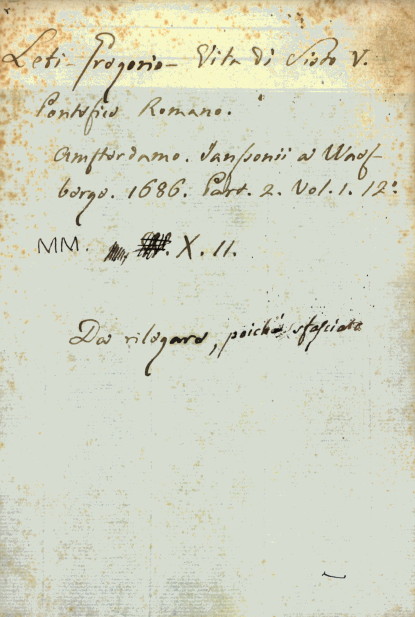 Leti - Gregorio - Vita di Sisto V.
Pontefice Romano.
Amsterdamo. Janssonii a Waes-
berge. 1686. Part. 2. Vol. 1. 12°
MM. X. 11.
Da rilegare, poichè sfasciato